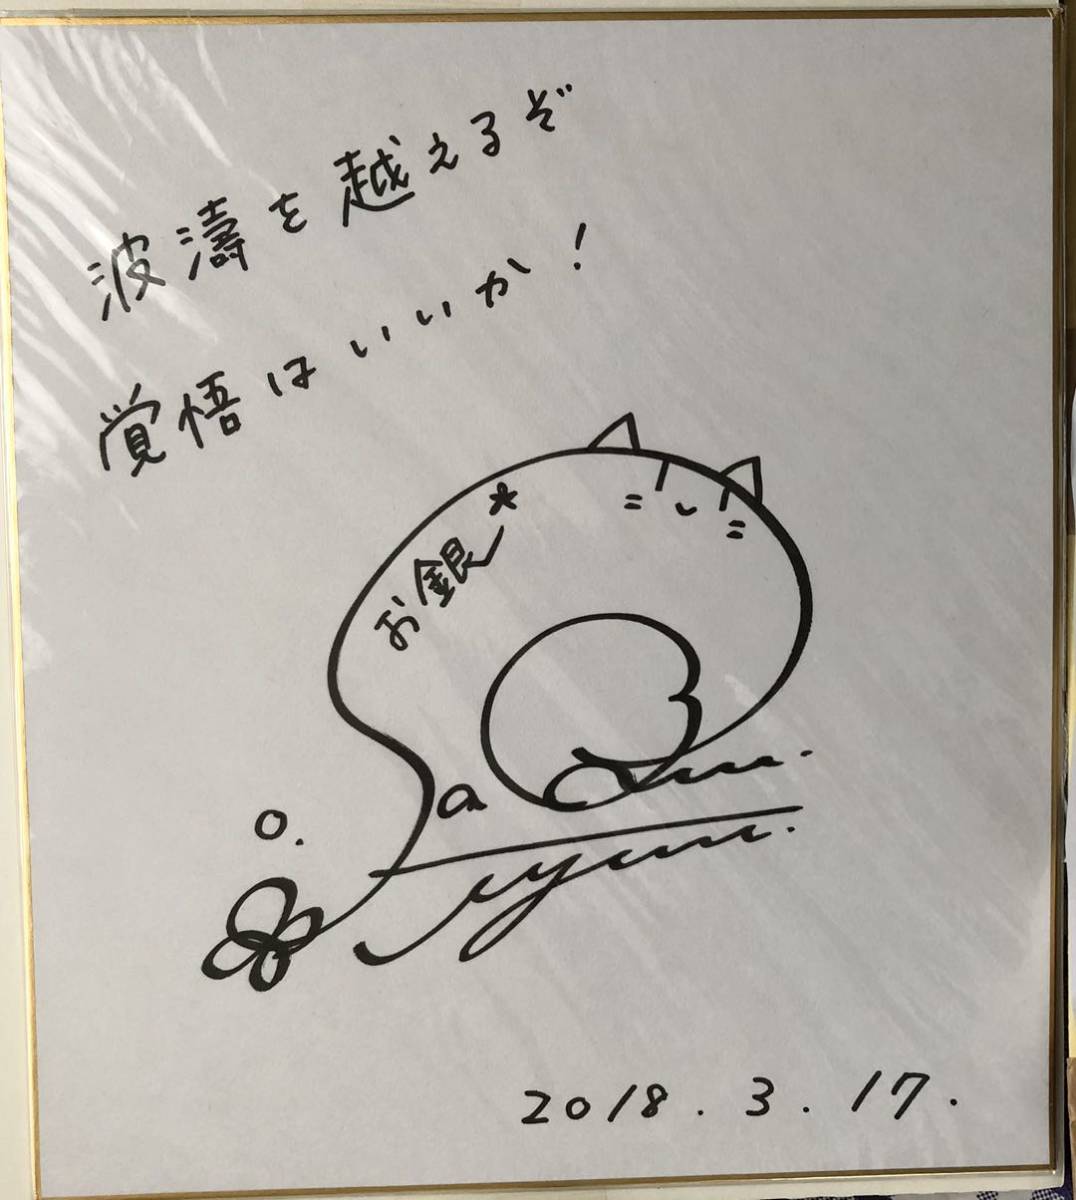 波濤を越えるぞ
覚悟はいいか!
お銀
2018.3.17.